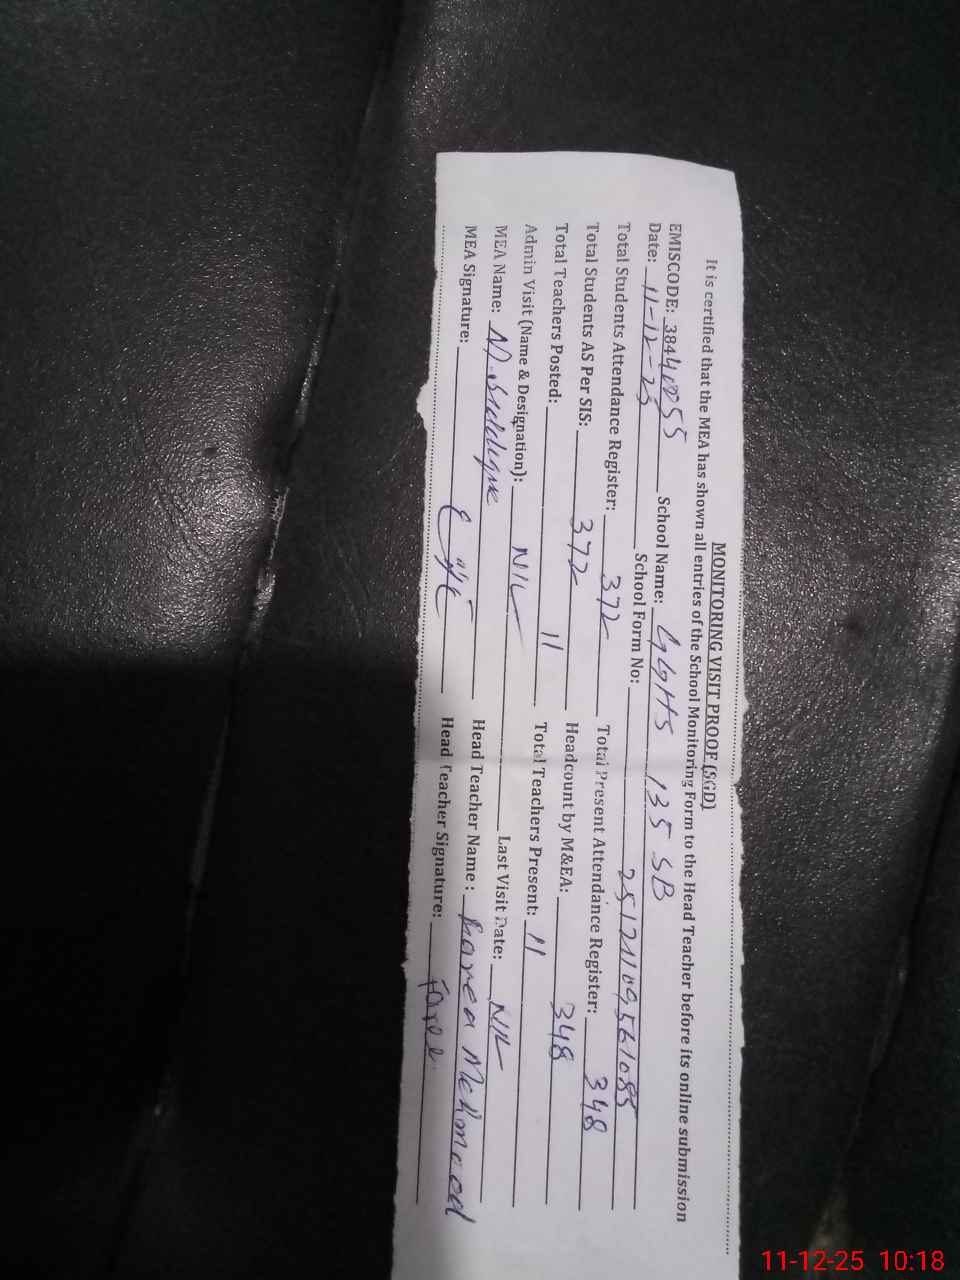 MONITORING VISIT PROOF (SGD)
It is certified that the MEA has shown all entries of the School Monitoring Form to the Head Teacher before its online submission
EMISCODE: 38440055 School Name: GGHS 135 SB
Date: 11-12-25 School Form No: 251211095561085
Total Students Attendance Register: 372 Total Present Attendance Register: 348
Total Students AS Per SIS: 372 Headcount by M&EA: 348
Total Teachers Posted: 11 Total Teachers Present: 11
Admin Visit (Name & Designation): NIL Last Visit Date: NIL
MEA Name: M. Siddique Head Teacher Name: Mehmood
MEA Signature: Head Teacher Signature:
11-12-25 10:18